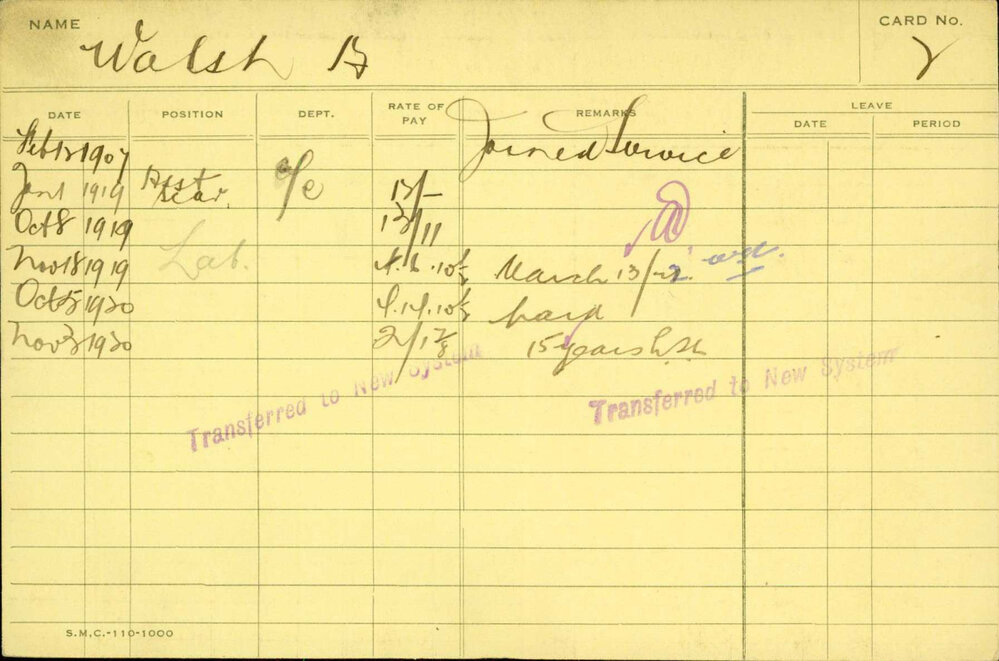 NAME
Walsh B
CARD No.
2
DATE
POSITION
DEPT.
RATE OF PAY
REMARKS
LEAVE
DATE
PERIOD
Feb 12 1907 Joined Service
Jan 1 1919 Asst 13/-
Oct 8 1919 13/11
Nov 18 1919 Lab. March 13/22
Oct 5 1920
Nov 3 1920 15 years L.S.L.
Transferred to New System
Transferred to New System
S.M.C.-110-1000